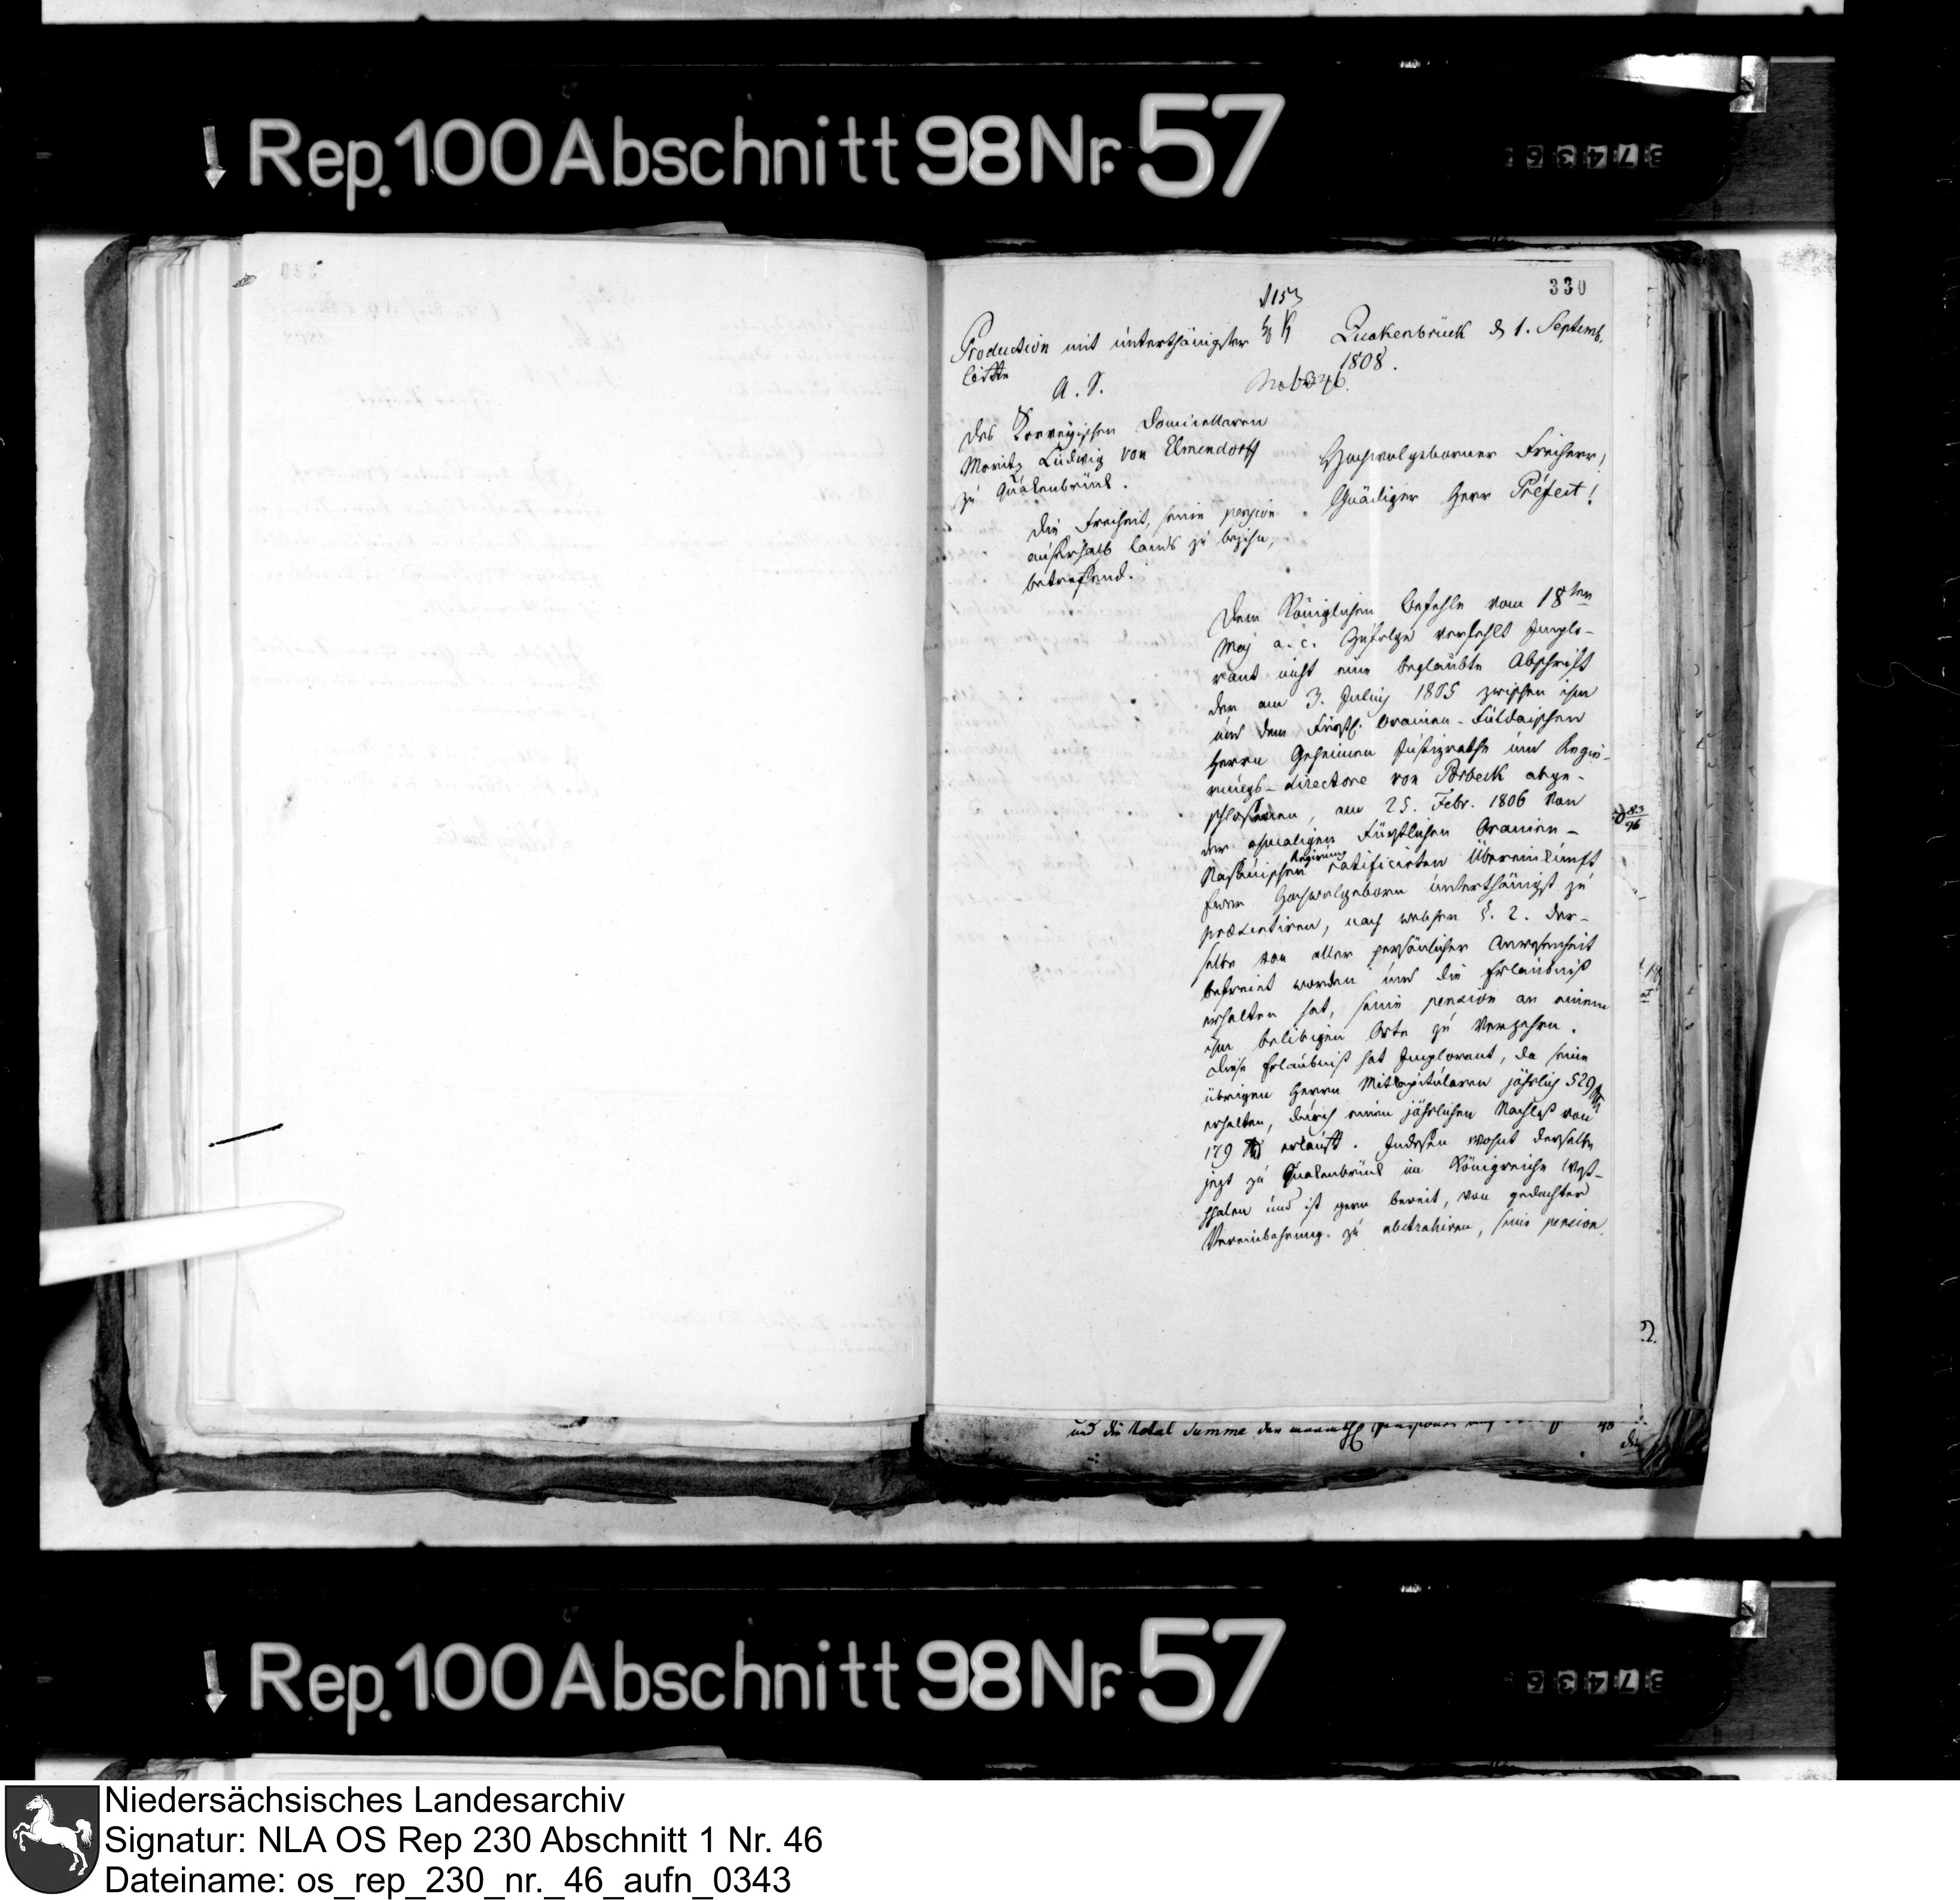 Rep. 100 Abschnitt 98 Nr. 57
330
Production mit unterthänigster
Bitte
A. S.
Quakenbrück d 1. Septemb.
1808.
des Corveyischen Domicellaren
Moritz Ludwig von Elmendorff
zu Quakenbrück.
die Freiheit, seine pension
außerhalb Lands zu beziehn,
betreffend.
Hochwolgeborner Freiherr,
Gnädiger Herr Préfect!
Dem Königlichen Befehle vom 18ten
May a. c. zufolge verfehlt Implo-
rant nicht eine beglaubte Abschrift
der am 3. Julius 1805 zwischen ihm
und dem Fürstl. Oranien-Fuldaischen
Herrn Geheimen Justizrathe und Regie-
rungs-Directore von Porbeck abge-
schlossenen, am 25. Febr. 1806 von
der ehmaligen Fürstlichen Oranien-
Nassauischen Regierung ratificirten Übereinkunft
Euer Hochwolgeborn unterthänigst zu
præsentiren, nach welcher §. 2. der-
selbe von aller persönlicher Anwesenheit
befreiet worden und die Erlaubniß
erhalten hat, seine pension an einem
ihm beliebigen Orte zu verzehren.
diese Erlaubniß hat Implorant, da seine
übrigen Herrn Mitkapitularen jährlich 529 Rth
erhalten, durch einen jährlichen Nachlaß von
179 Rth erkauft. Indessen wohnt derselbe
jezt zu Quakenbrück im Königreiche West-
phalen und ist gern bereit, von gedachter
Vereinbahrung zu abstrahiren, seine pension
und die total Summe der
Rep. 100 Abschnitt 98 Nr. 57
Niedersächsisches Landesarchiv
Signatur: NLA OS Rep 230 Abschnitt 1 Nr. 46
Dateiname: os_rep_230_nr._46_aufn_0343